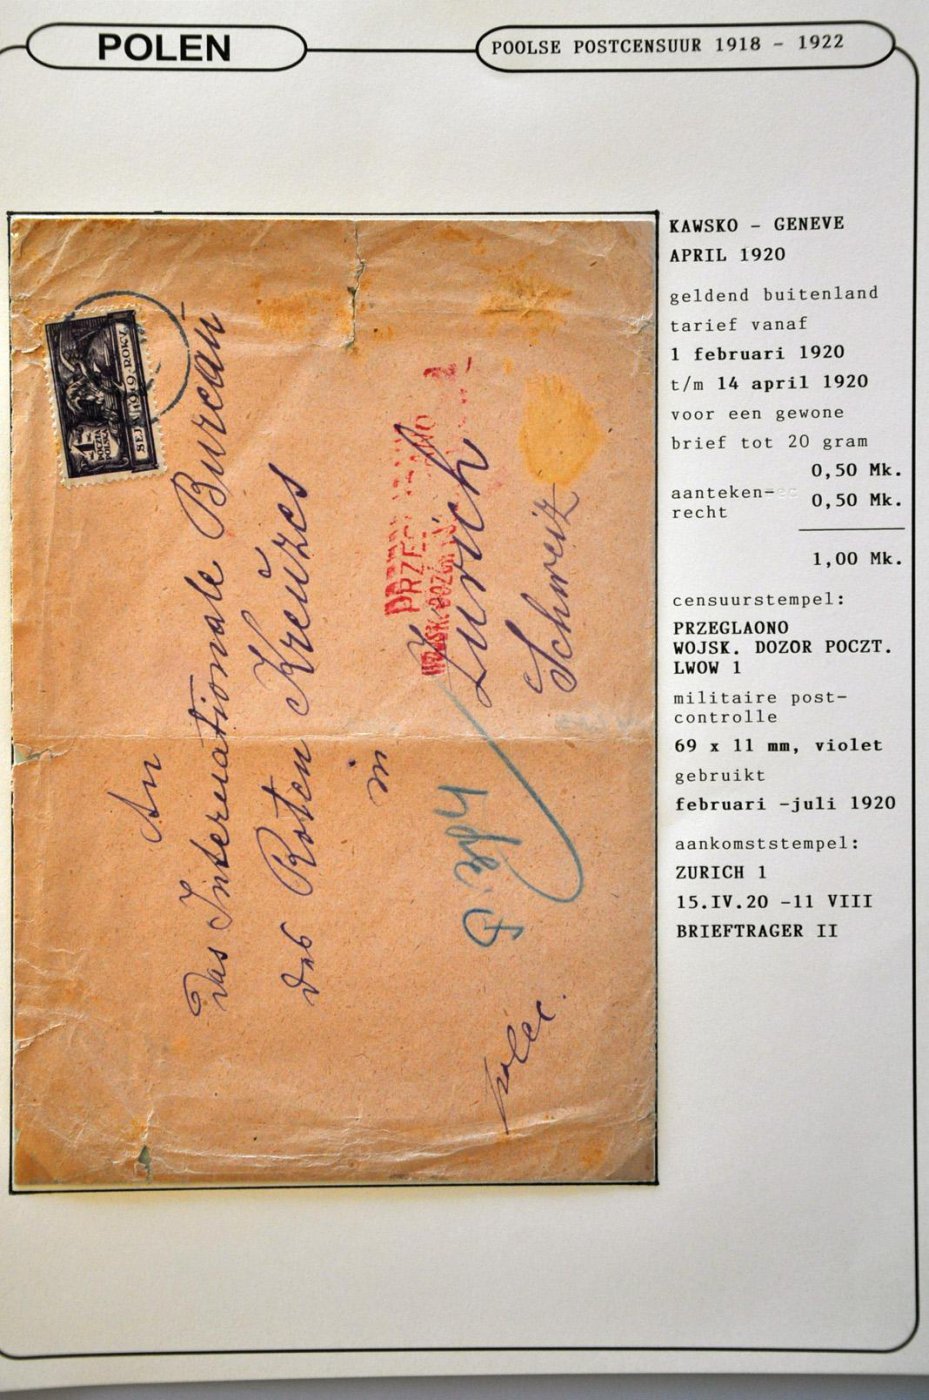 POLEN
POOLSE POSTCENSUUR 1918 - 1922
KAWSKO - GENEVE
APRIL 1920
geldend buitenland
tarief vanaf
1 februari 1920
t/m 14 april 1920
voor een gewone
brief tot 20 gram
0,50 Mk.
aanteken-
recht
0,50 Mk.
1,00 Mk.
censuurstempel:
PRZEGLAONO
WOJSK. DOZOR POCZT.
LWOW 1
militaire post-
controlle
69 x 11 mm, violet
gebruikt
februari -juli 1920
aankomststempel:
ZURICH 1
15.IV.20 -11 VIII
BRIEFTRAGER II
An
Das Internationale Bureau
des Roten Kreuzes
in
Zürich
Schweiz
polec.
1
POCZTA
POLSKA
SEJM 1919 ROKU
PRZE
WOJSK. DOZÓR